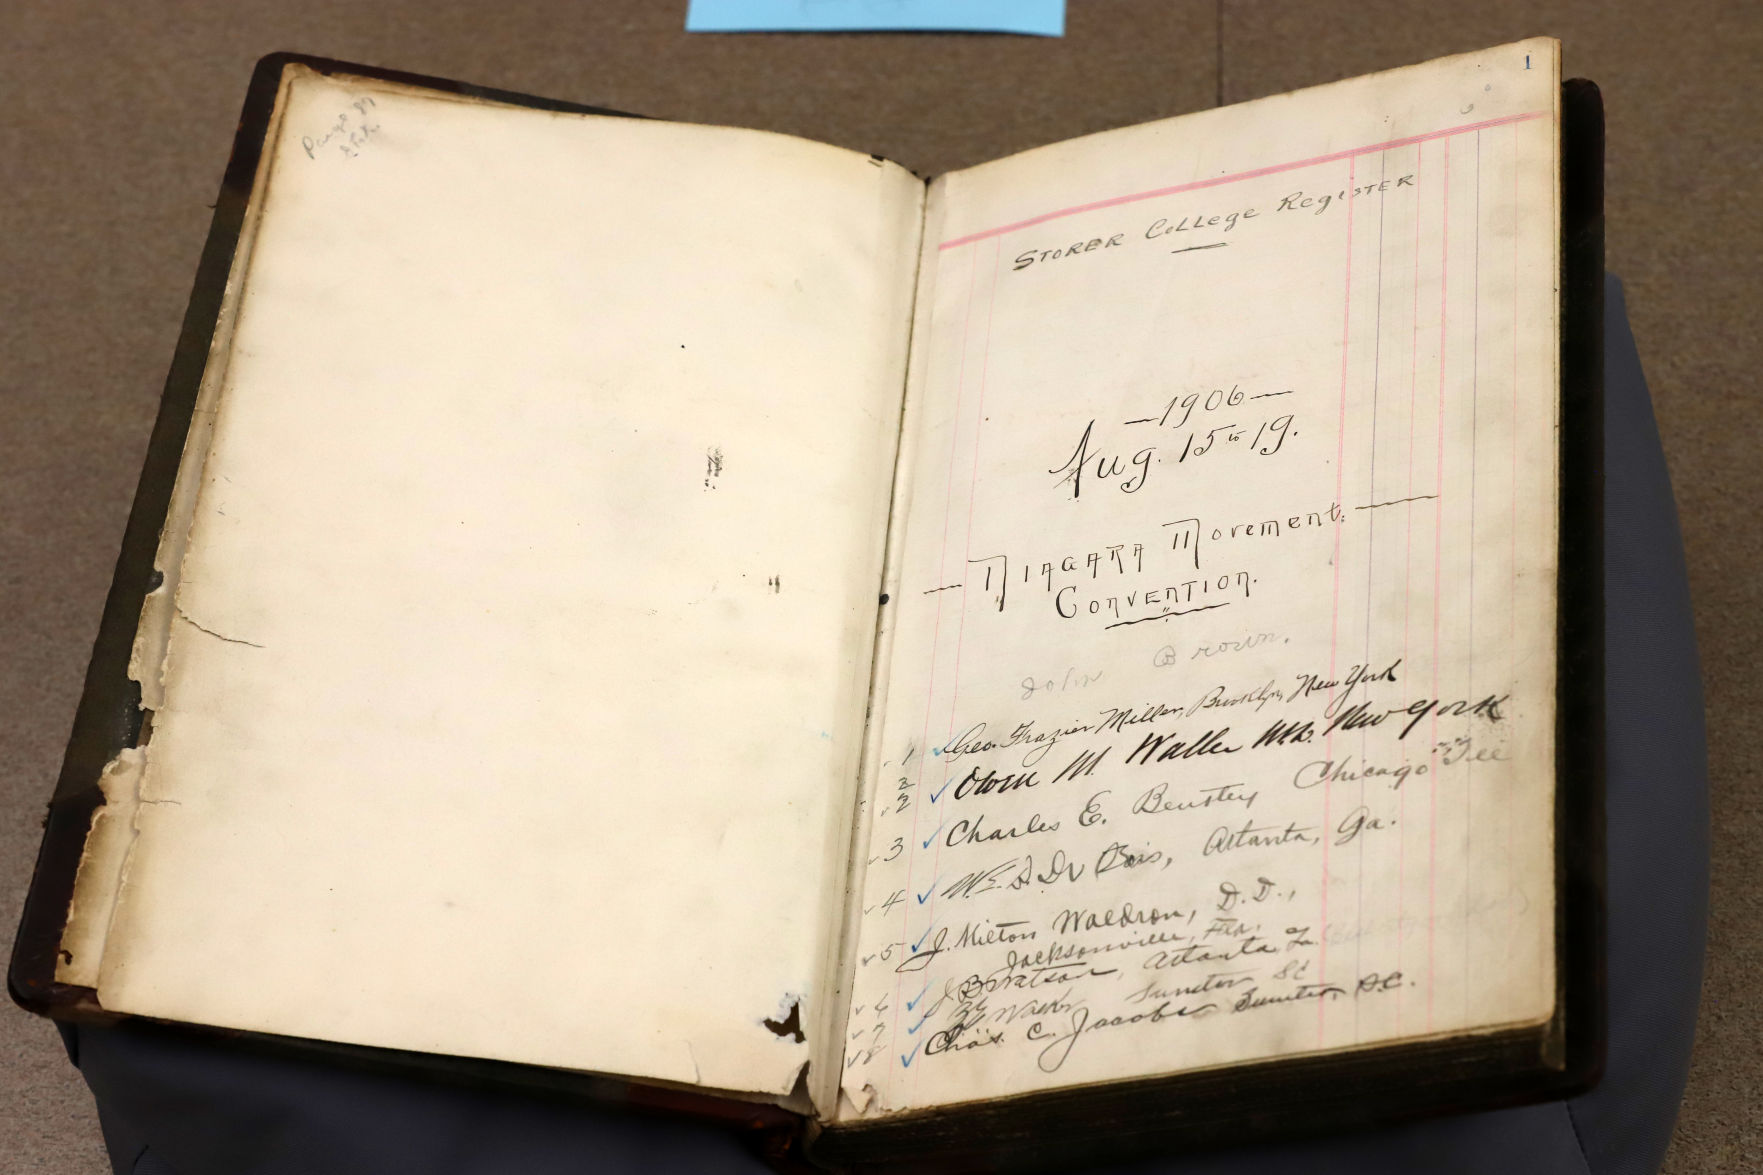 Page 89
1
STORER COLLEGE REGISTER
—1906—
Aug. 15 to 19.
— NIAGARA MOVEMENT. —
CONVENTION.
John Brown.
1 ✓ Geo. Frazier Miller, Brooklyn, New York
2 2 ✓ Owen M. Waller M.D. New York
3 ✓ Charles E. Bentley Chicago Ill
4 ✓ W.E.B. Du Bois, Atlanta, Ga.
5 ✓ J. Milton Waldron, D.D.,
Jacksonville, Fla.
6 ✓ J B Watson, Atlanta, Ga
7 ✓ Sumter SC
8 ✓ Chas. C. Jacobs Sumter, S.C.